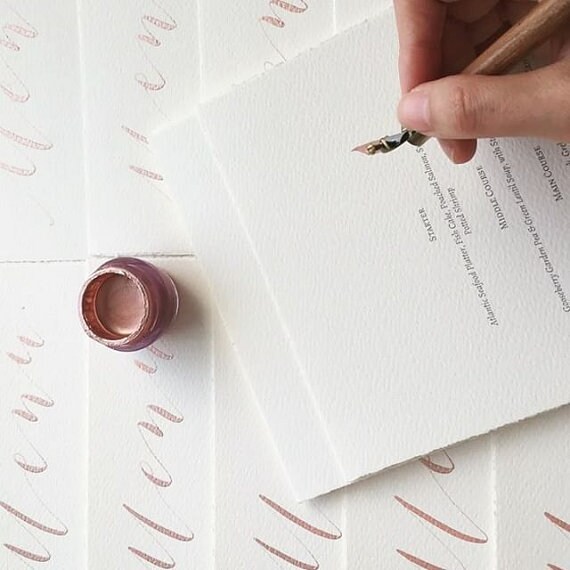 STARTER
Atlantic Seafood Platter, Fish Cake, Poached Salmon, S
Potted Shrimp
MIDDLE COURSE
Gooseberry Garden Pea & Green Lentil Soup, with St
MAIN COURSE
Menu
Menu